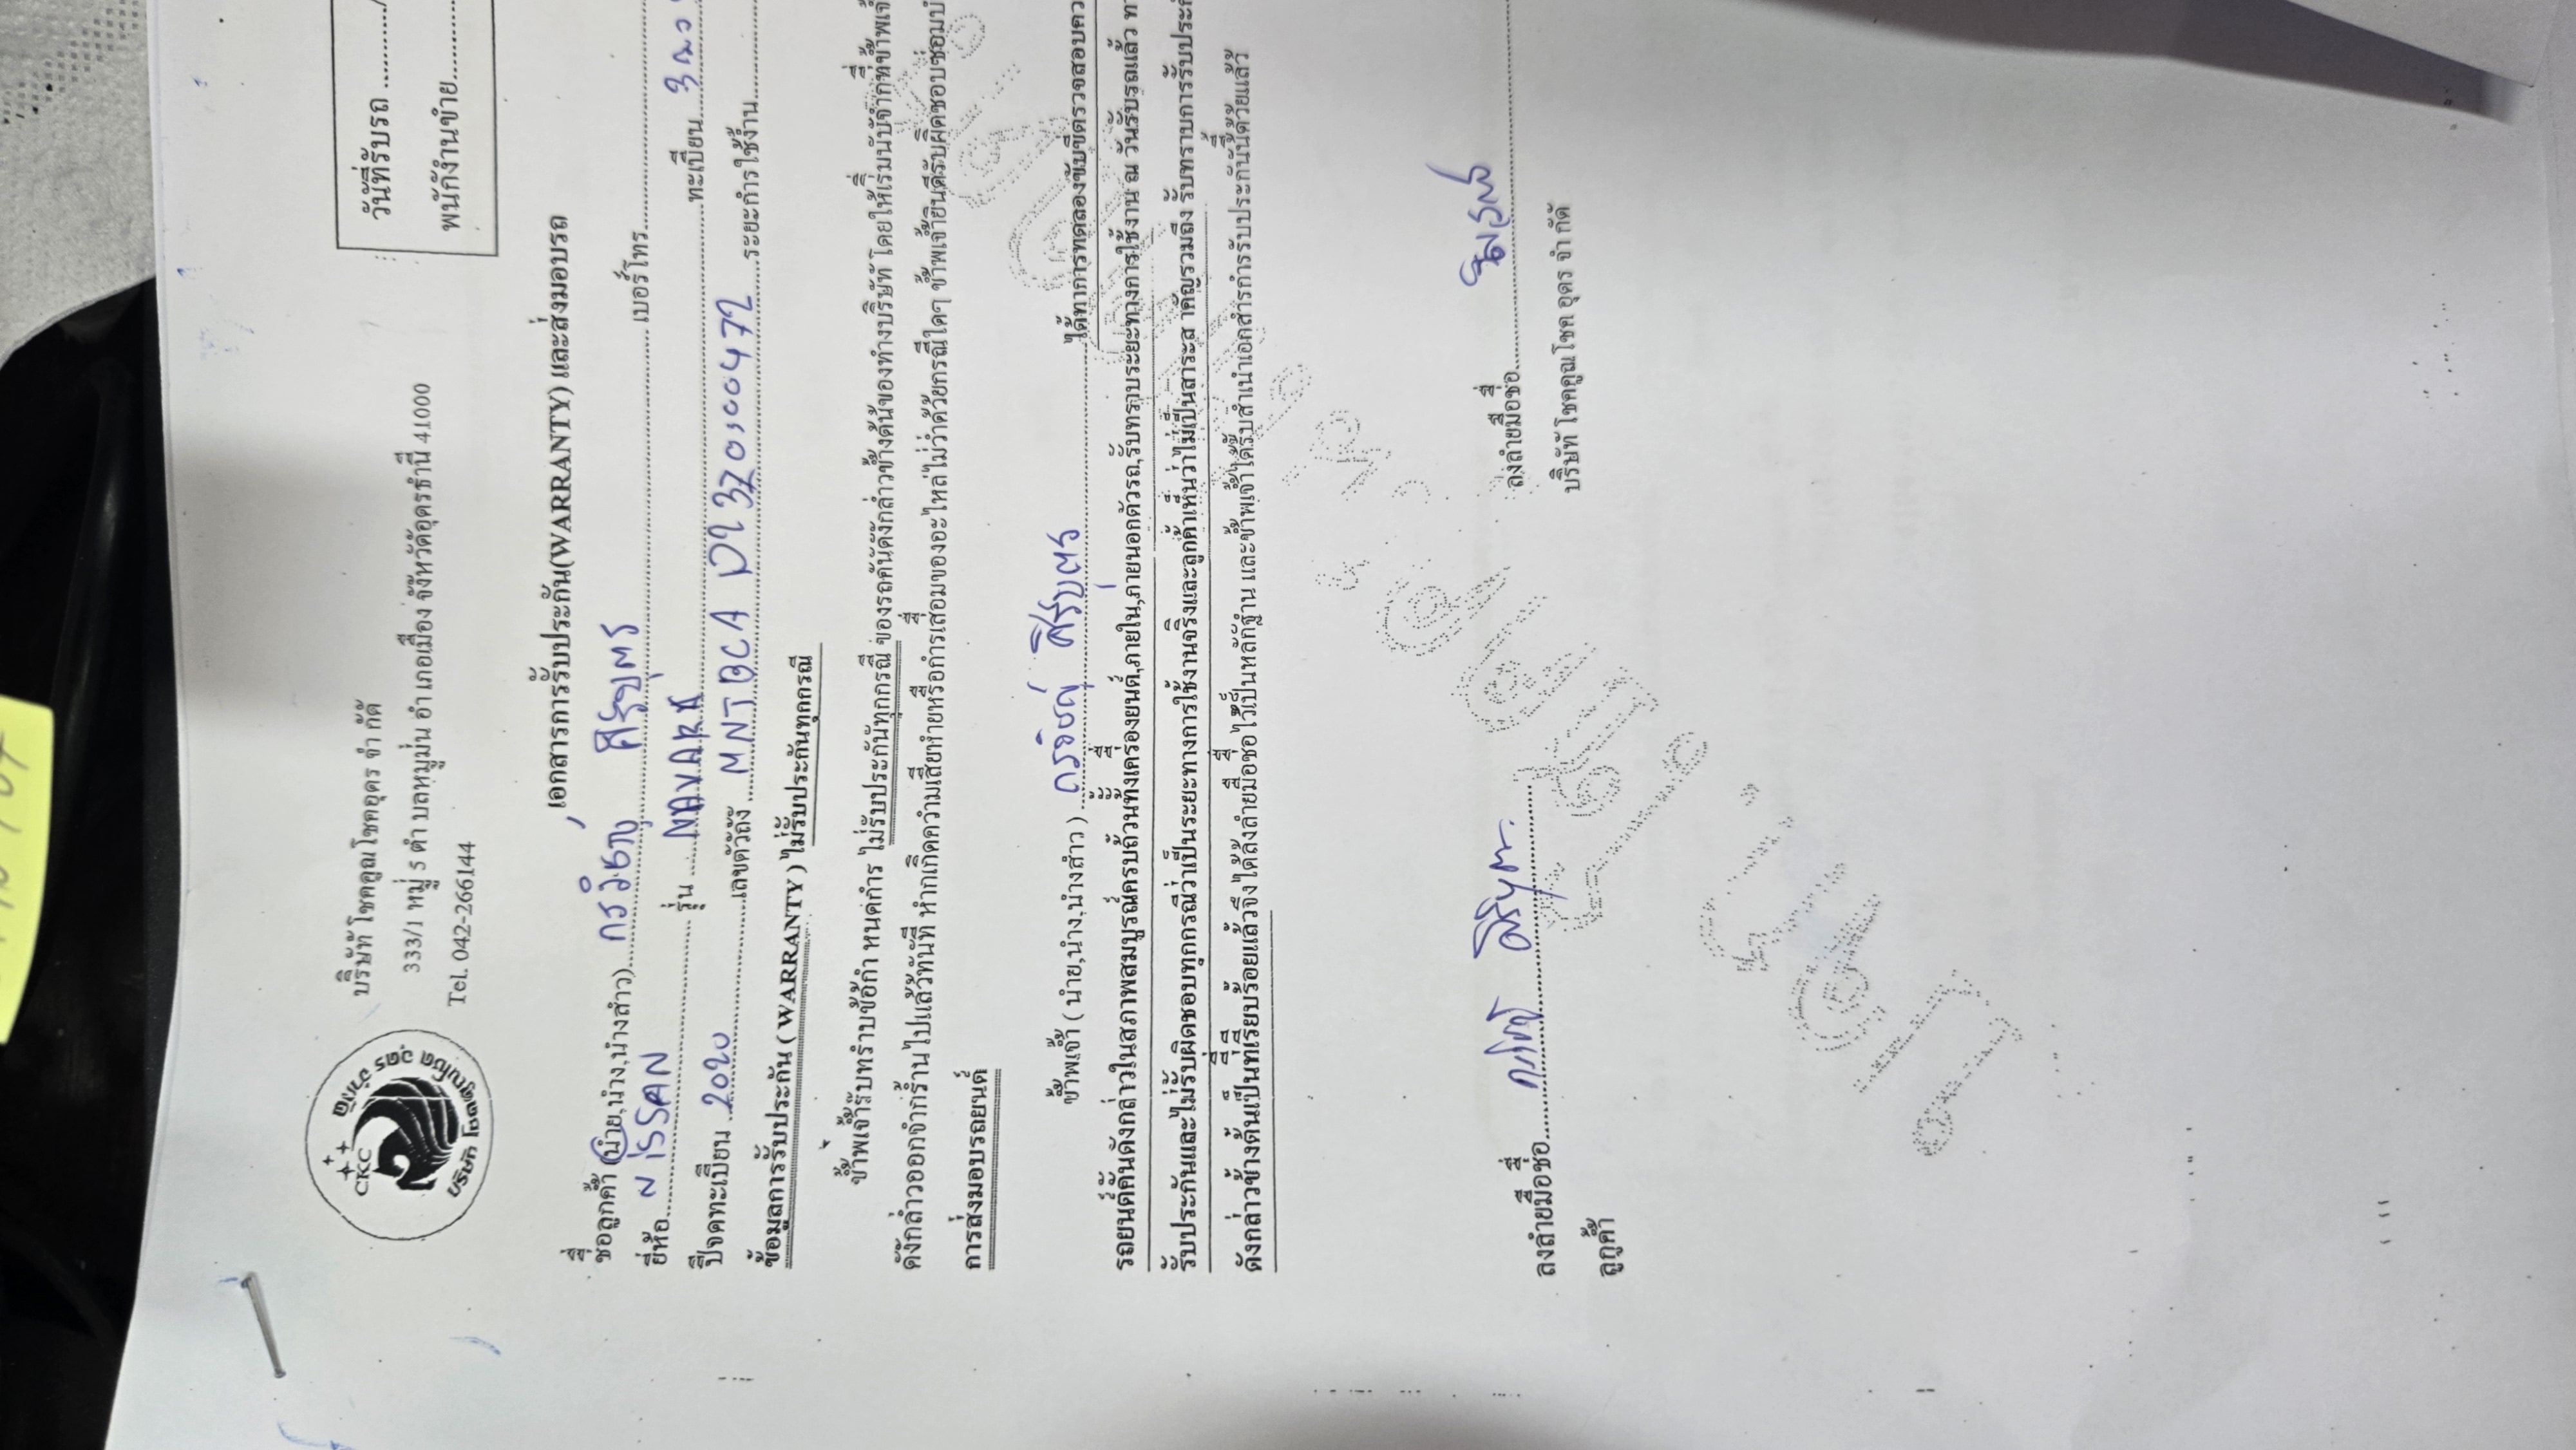 วันที่รับรถ ........../
พนักงานขาย..........
CKC
บริษัท โชคคูณโชค อุดร จำกัด
บริษัท โชคคูณโชคอุดร จำกัด
333/1 หมู่ 5 ตำบลหมูม่น อำเภอเมือง จังหวัดอุดรธานี 41000
Tel. 042-266144
เอกสารการรับประกัน(WARRANTY) และส่งมอบรถ
ชื่อลูกค้า (นาย,นาง,นางสาว)..... ศิริบุตร ..... เบอร์โทร..........
ยี่ห้อ..... NISSAN ..... รุ่น ..... NAVARA ..... ทะเบียน.....
ปีจดทะเบียน ..... 2020 ..... เลขตัวถัง ..... MNTBCA ..... ระยะการใช้งาน..........
ข้อมูลการรับประกัน ( WARRANTY ) ไม่รับประกันทุกกรณี
ข้าพเจ้ารับทราบข้อกำหนดการ ไม่รับประกันทุกกรณี ของรถคันดังกล่าวข้างต้นของทางบริษัท โดยให้เริ่มนับจากที่ข้าพเจ้
ดังกล่าวออกจากร้านไปแล้วทันที หากเกิดความเสียหายหรือการเสื่อมของอะไหล่ไม่ว่าด้วยกรณีใดๆ ข้าพเจ้ายินดีรับผิดชอบซ่อม
การส่งมอบรถยนต์
ข้าพเจ้า ( นาย,นาง,นางสาว ) ..... ศิริบุตร ..... ได้ทำการทดลองขับขี่ตรวจสอบคว
รถยนต์คันดังกล่าวในสภาพสมบูรณ์ครบถ้วนทั้งเครื่องยนต์,ภายใน,ภายนอกตัวรถ,รับทราบระยะทางการใช้งาน ณ วันรับรถแล้ว ท
รับประกันและไม่รับผิดชอบทุกกรณีว่าเป็นระยะทางการใช้งานจริงและลูกค้าเห็นว่าไม่เป็นสาระสำคัญรวมถึง รับทราบการรับประ
ดังกล่าวข้างต้นเป็นที่เรียบร้อยแล้วจึงได้ลงลายมือชื่อไว้เป็นหลักฐาน และข้าพเจ้าได้รับสำเนาเอกสารการรับประกันนี้ด้วยแล้ว
ลงลายมือชื่อ.......... ลงลายมือชื่อ..........
ลูกค้า บริษัท โชคคูณโชค อุดร จำกัด